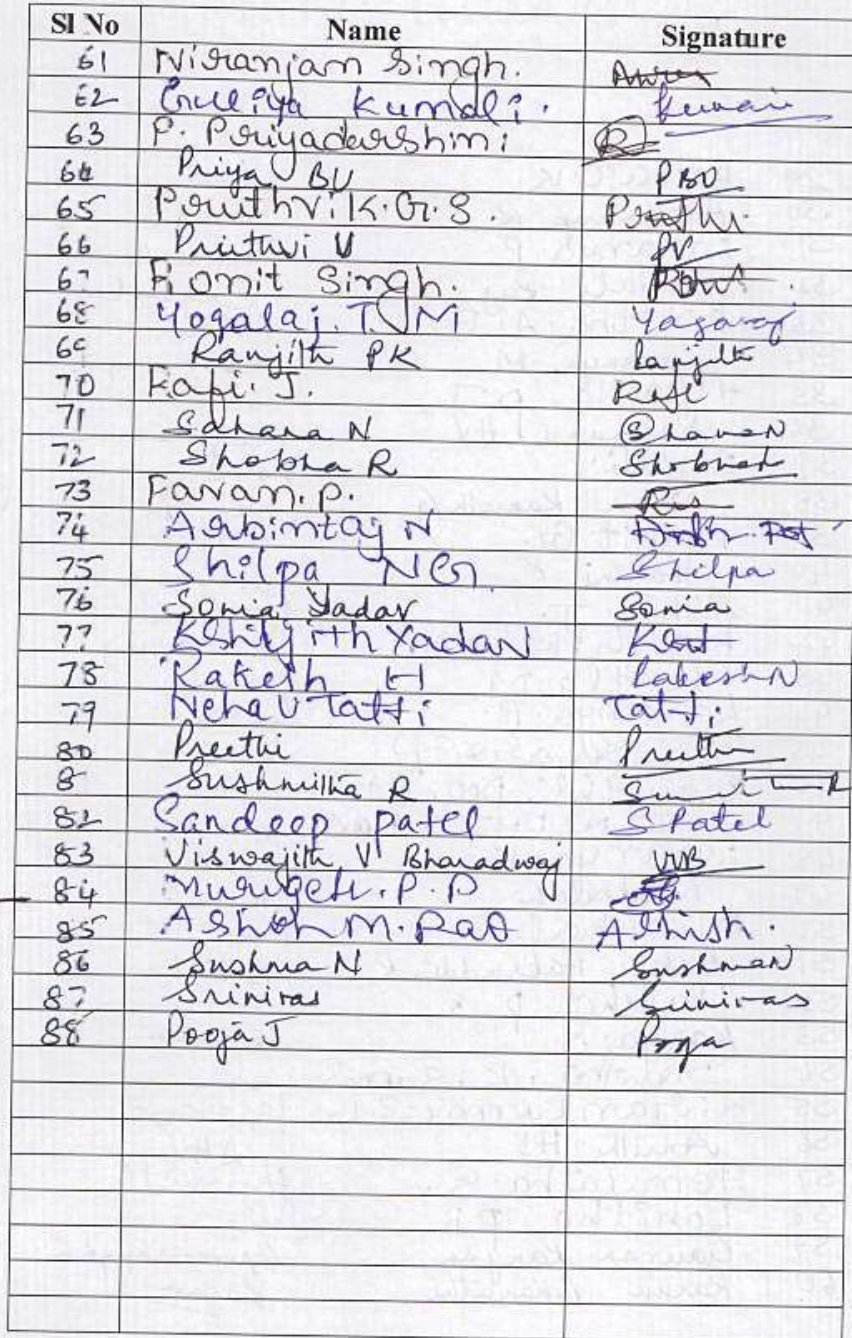 Sl No Name Signature
61 Niranjan Singh.
62 Kumali. Kumari
63 P. Priyadarshini
64 Priya BU PBU
65 Pruthvi.K.G.S. Pruthvi.
66 Pruthvi V PV
67 Romit Singh. Romit
68 Yogalaj. T. M Yogaraj
69 Ranjith PK Ranjith
70 Rafi. J. Rafi
71 Sahana N
72 Shobha R Shobha
73 Favan. P.
74 Aabimtaj N
75 Shilpa NG. Shilpa
76 Sonia Yadav Sonia
77 Kshiljith Yadav
78 Rakesh H Rakesh N
79 Neha V Tatti Tatti
80 Preethi Preethi
8 Sushmitha R
82 Sandeep patel S Patel
83 Viswajith V Bharadwaj VVB
84 Murugesh. P. P
85 Ashok M. Rao Ashish.
86 Sushma N Sushma N
87 Srinivas Srinivas
88 Pooja J Pooja